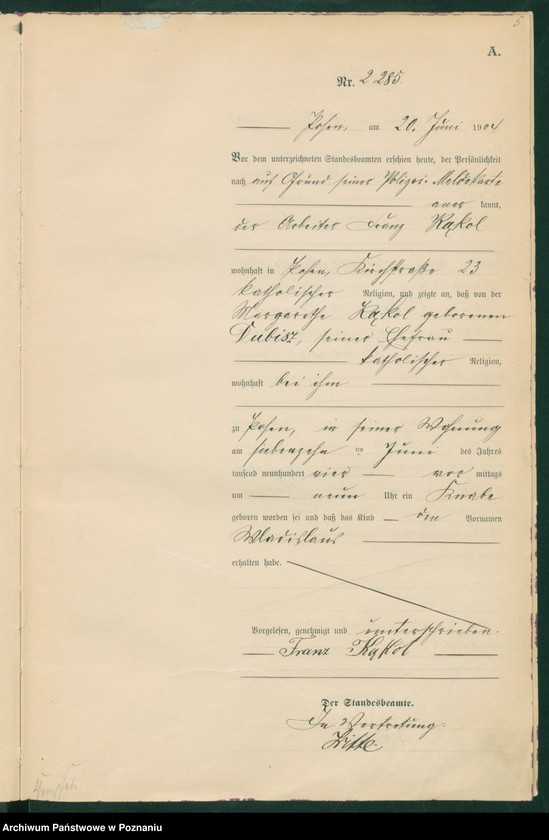 5
A.
Nr. 2285.
Posen, am 20. Juni 1904
Vor dem unterzeichneten Standesbeamten erschien heute, der Persönlichkeit
nach auf Grund seiner Polizei-Meldekarte
aner kannt,
der Arbeiter Franz Kąkol
wohnhaft in Posen, Kirchstraße 23
katholischer Religion, und zeigte an, daß von der
Margarethe Kąkol geborenen
Dubisz, seiner Ehefrau
katholischer Religion,
wohnhaft bei ihm
zu Posen, in seiner Wohnung
am siebenzehn ten Juni des Jahres
tausend neunhundert vier vor mittags
um neun Uhr ein Knabe
geboren worden sei und daß das Kind den Vornamen
Wladislaus
erhalten habe.
Vorgelesen, genehmigt und unterschrieben.
Franz Kąkol
Der Standesbeamte.
In Vertretung.
Archiwum Państwowe w Poznaniu